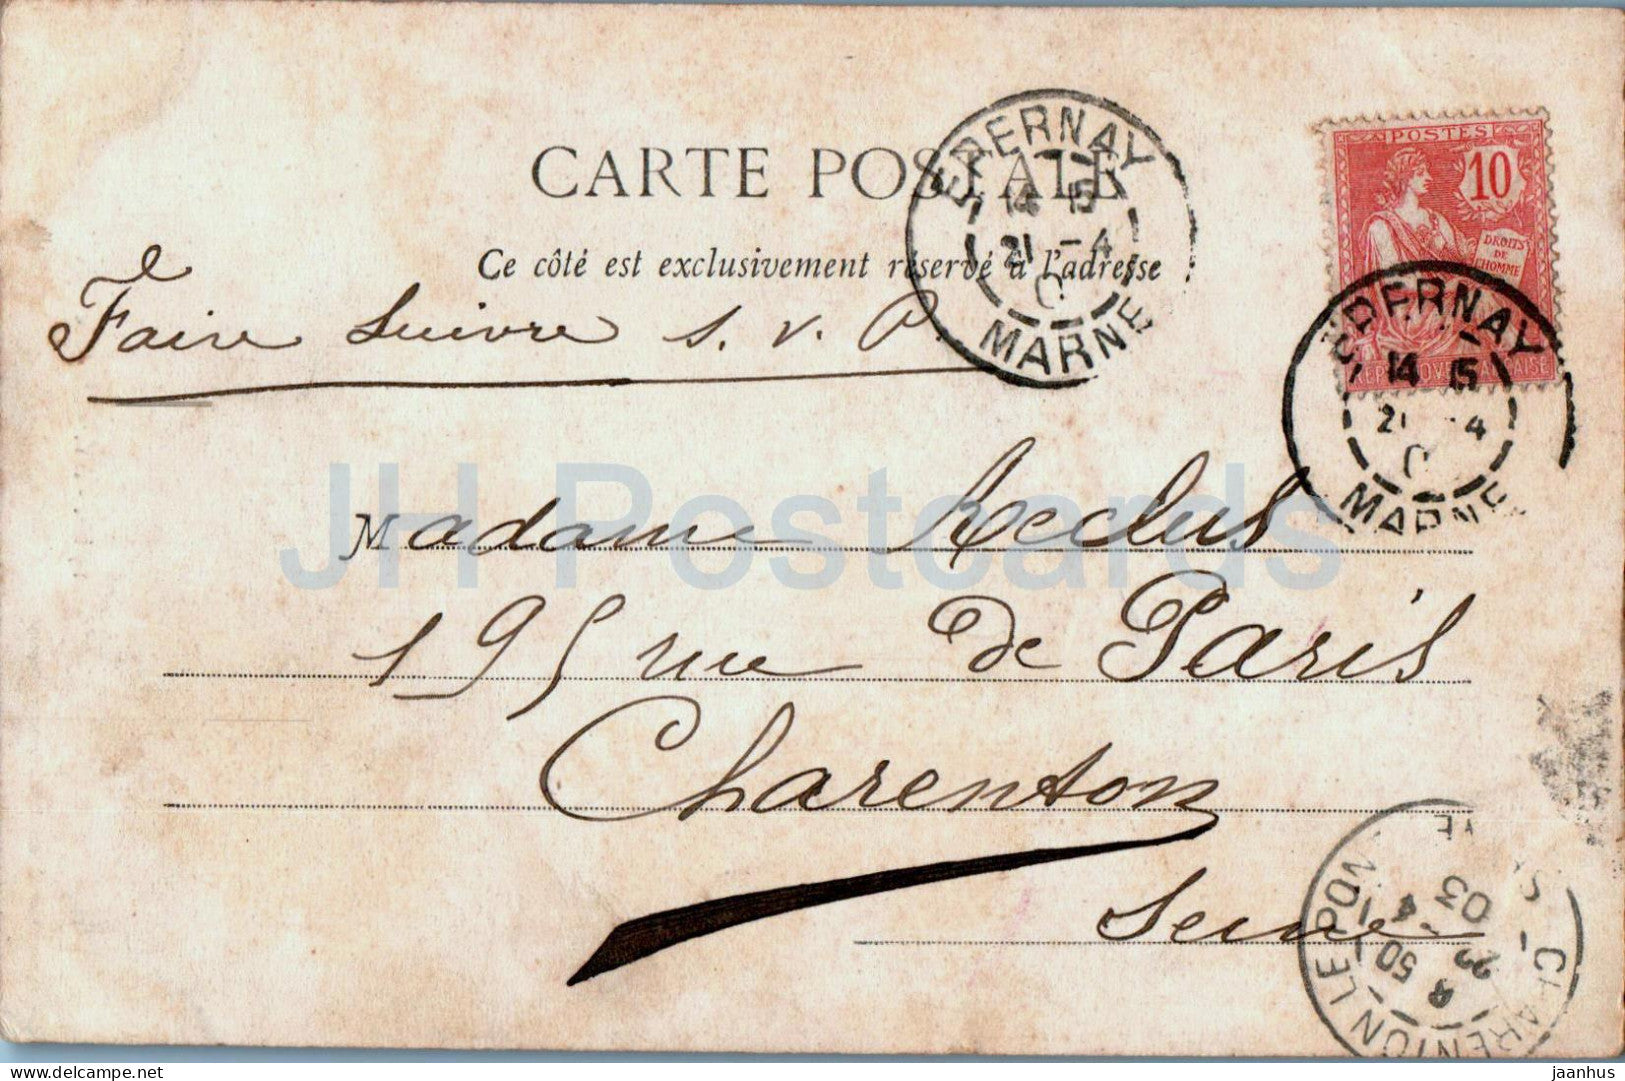 CARTE POSTALE
Ce côté est exclusivement réservé à l'adresse
Faire suivre s. v. P.
EPERNAY
14 15
21 - 4
0
MARNE
POSTES
10
DROITS
DE
L'HOMME
EPERNAY
14 15
21 -4
0
MARNE
Madame Reclus
195 rue de Paris
Charenton
Seine
CHARENTON LE PONT
8 50
22 - 4
03
JH Postcards
jaanhus
delcampe.net